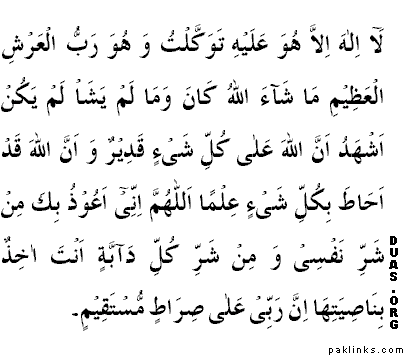 لَآ اِلٰهَ اِلاَّ هُوَ عَلَيْهِ تَوَكَّلْتُ وَ هُوَ رَبُّ الْعَرْشِ
الْعَظِيْمِ مَا شَآءَ اللهُ كَانَ وَمَا لَمْ يَشَاْ لَمْ يَكُنْ
اَشْهَدُ اَنَّ اللهَ عَلٰى كُلِّ شَىْءٍ قَدِيْرٌ وَ اَنَّ اللهَ قَدْ
اَحَاطَ بِكُلِّ شَىْءٍ عِلْمًا اَللّٰهُمَّ اِنِّىْٓ اَعُوْذُ بِكَ مِنْ
شَرِّ نَفْسِىْ وَ مِنْ شَرِّ كُلِّ دَآبَّةٍ اَنْتَ اٰخِذٌ
بِنَاصِيَتِهَا اِنَّ رَبِّىْ عَلٰى صِرَاطٍ مُّسْتَقِيْمٍ۔
DUAS.ORG
paklinks.com